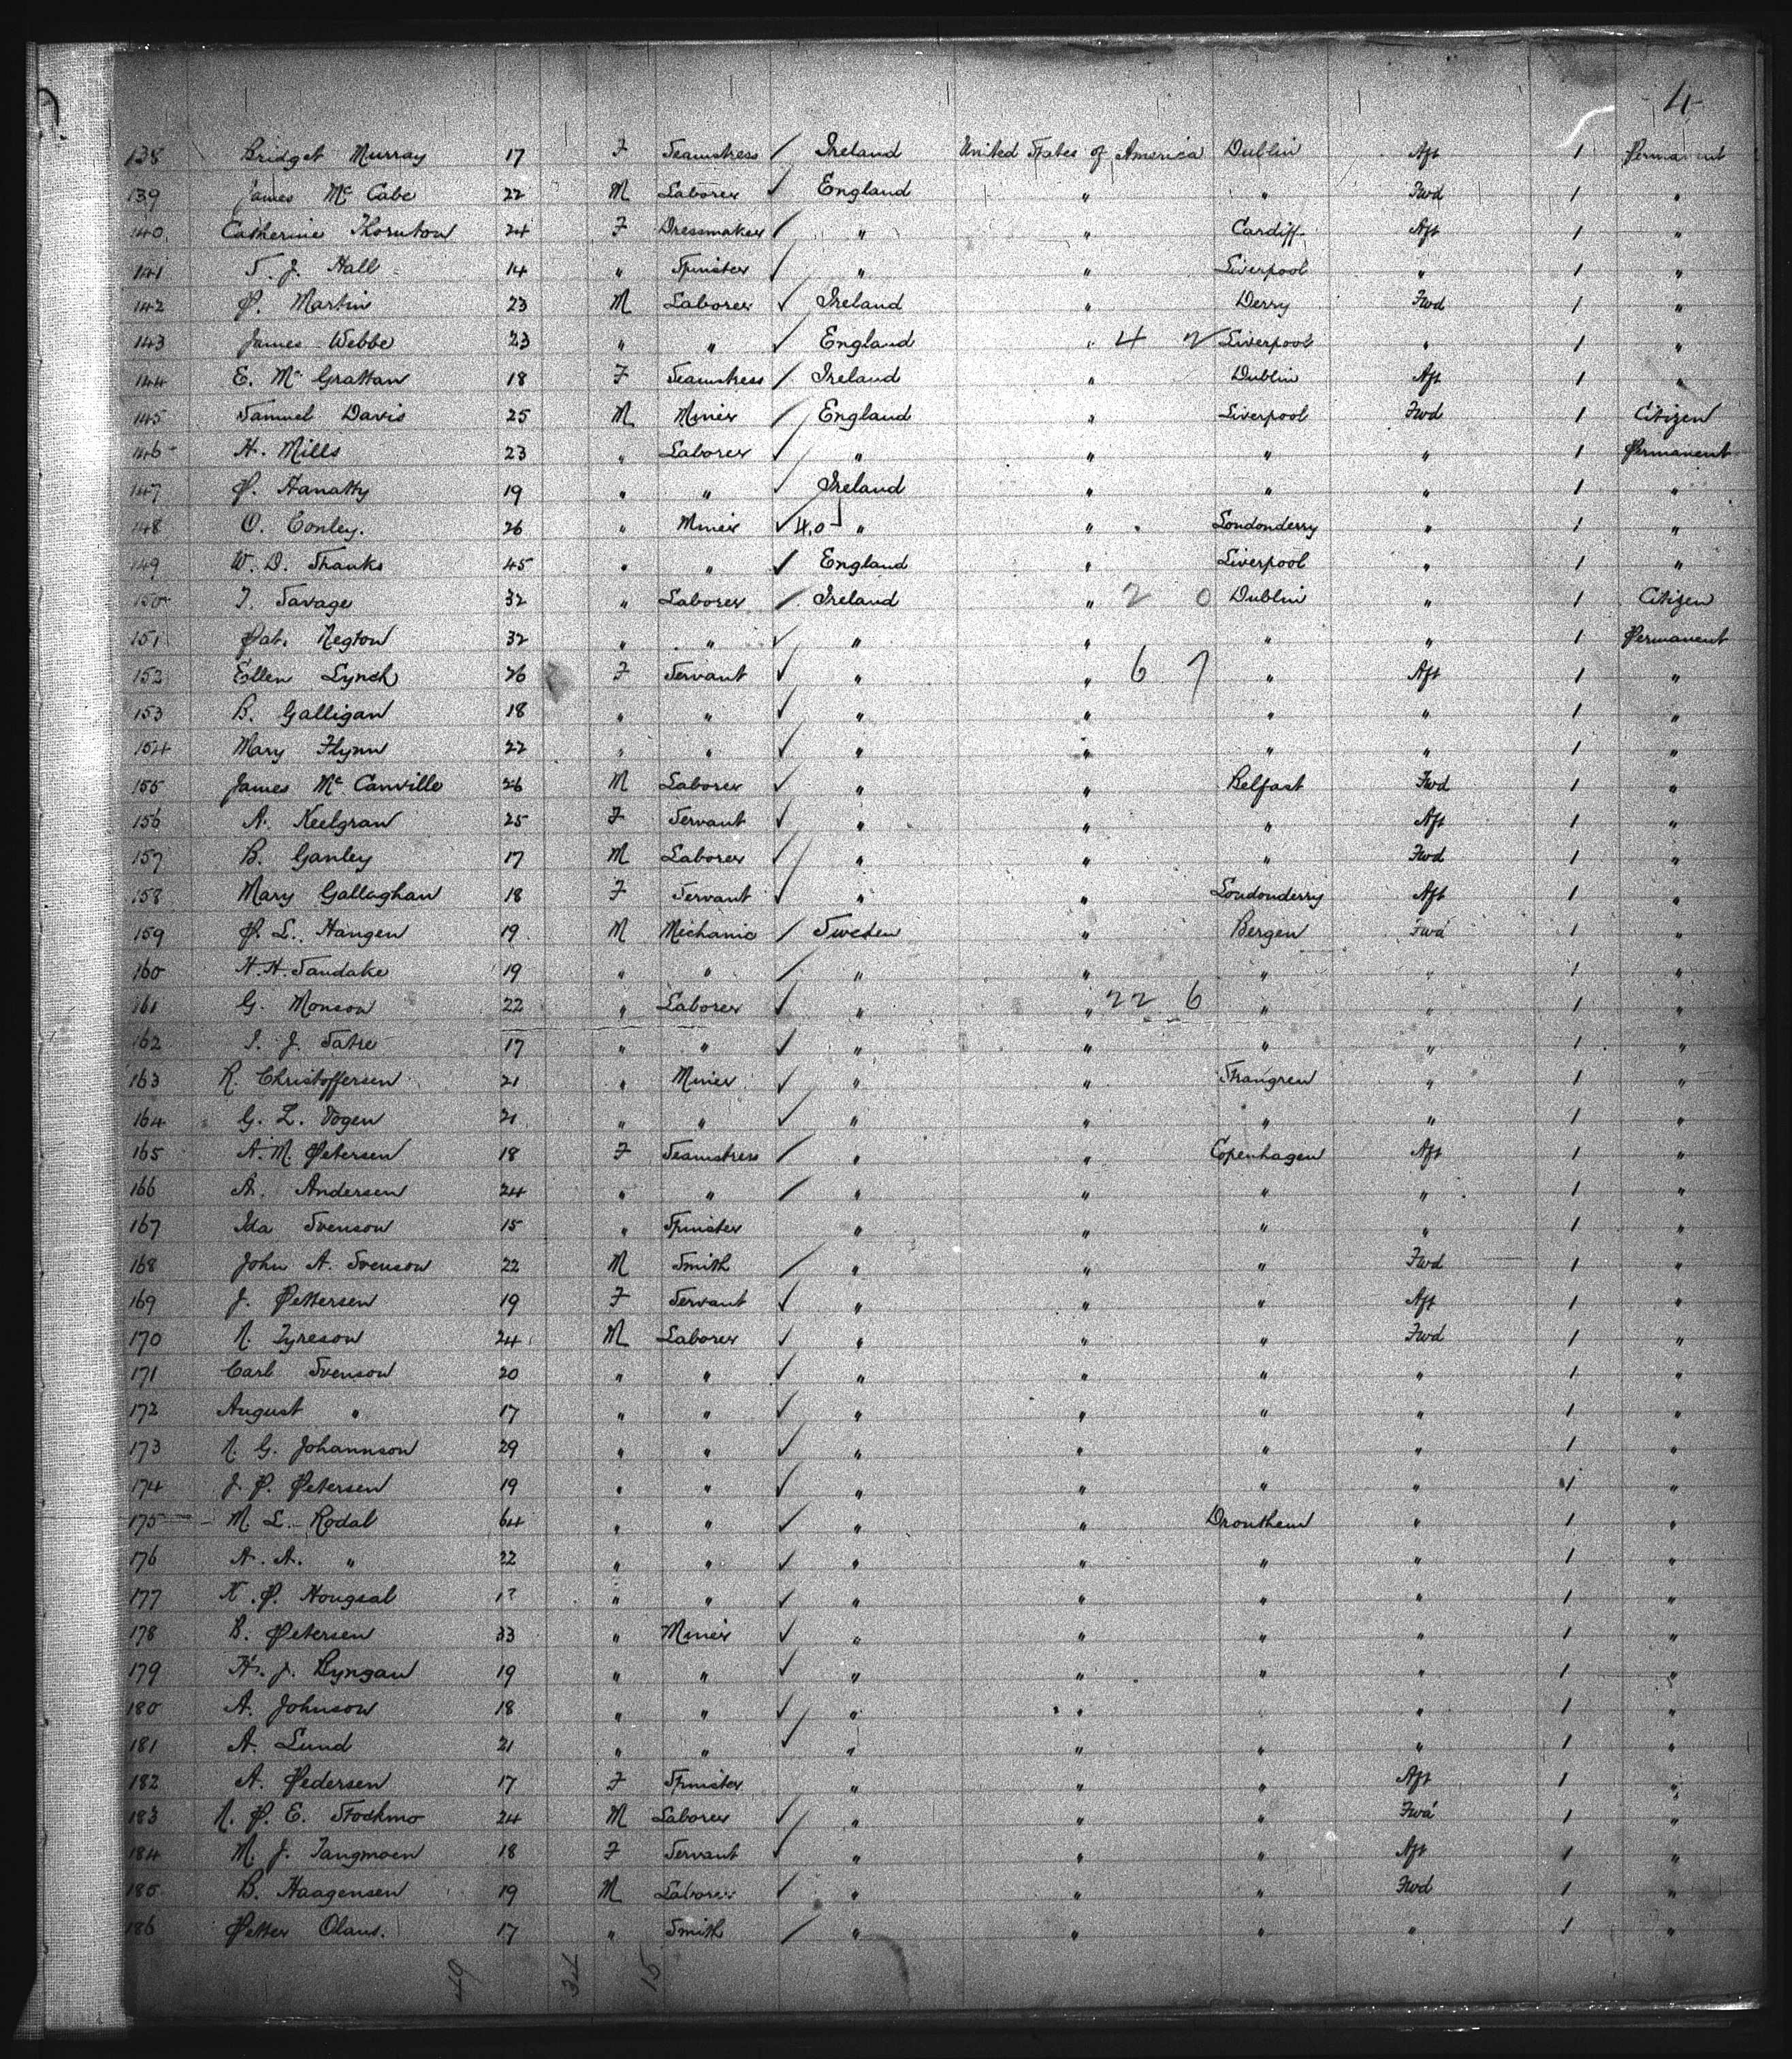 4
138 Bridget Murray 17 F Seamstress / Ireland United States of America Dublin Aft 1 Permanent
139 James Mc Cabe 22 M Laborer ✓ England " " Fwd 1 "
140 Catherine Thornton 24 F Dressmaker / " " Cardiff Aft 1 "
141 S. J. Hall 14 " Spinster ✓ " " Liverpool " 1 "
142 P. Martin 23 M Laborer ✓ Ireland " Derry Fwd 1 "
143 James Webbe 23 " " ✓ England " 4 2 Liverpool " 1 "
144 E. Mc Grattan 18 F Seamstress / Ireland " Dublin Aft 1 "
145 Samuel Davis 25 M Miner / England " Liverpool Fwd 1 Citizen
146 H. Mills 23 " Laborer ✓ " " " " 1 Permanent
147 P. Hanatty 19 " " ✓ Ireland " " " 1 "
148 O. Conley. 26 " Miner ✓ 40 " " Londonderry " 1 "
149 W. D. Shanks 45 " " ✓ England " Liverpool " 1 "
150 J. Savage 32 " Laborer / Ireland " 2 0 Dublin " 1 Citizen
151 Pat. Negton 32 " " ✓ " " " " 1 Permanent
152 Ellen Lynch 26 F Servant ✓ " " 6 7 " Aft 1 "
153 B. Galligan 18 " " ✓ " " " " 1 "
154 Mary Flynn 22 " " ✓ " " " " 1 "
155 James Mc Canville 26 M Laborer ✓ " " Belfast Fwd 1 "
156 A. Keelgran 25 F Servant ✓ " " " Aft 1 "
157 B. Ganley 17 M Laborer ✓ " " " Fwd 1 "
158 Mary Gallaghan 18 F Servant ✓ " " Londonderry Aft 1 "
159 P. L. Hangen 19 M Mechanic / Sweden " Bergen Fwd 1 "
160 H. H. Sandake 19 " " / " " " " 1 "
161 G. Monson 22 " Laborer ✓ " " 22 6 " " 1 "
162 S. J. Satre 17 " " ✓ " " " " 1 "
163 R. Christoffersen 21 " Miner ✓ " " Shangren " 1 "
164 G. L. Vogen 21 " " ✓ " " " " 1 "
165 A. M. Petersen 18 F Seamstress / " " Copenhagen Aft 1 "
166 A. Andersen 24 " " / " " " " 1 "
167 Ida Svenson 15 " Spinster " " " " 1 "
168 John A. Svenson 22 M Smith / " " " Fwd 1 "
169 J. Pettersen 19 F Servant ✓ " " " Aft 1 "
170 N. Tyreson 24 M Laborer ✓ " " " Fwd 1 "
171 Carl Svenson 20 " " ✓ " " " " 1 "
172 August " 17 " " ✓ " " " " 1 "
173 N. G. Johannson 29 " " ✓ " " " " 1 "
174 J. P. Petersen 19 " " ✓ " " " " 1 "
175 M. L. Rodal 64 " " ✓ " " Drontheim " 1 "
176 A. A. " 22 " " ✓ " " " " 1 "
177 K. P. Hougsal " " ✓ " " " " 1 "
178 B. Petersen 33 " Miner ✓ " " " " 1 "
179 H. J. Byngan 19 " " ✓ " " " " 1 "
180 A. Johnson 18 " " ✓ " " " 1 "
181 A. Lund 21 " " ✓ " " " " 1 "
182 A. Pedersen 17 F Spinster " " " Aft 1 "
183 N. P. E. Stockmo 24 M Laborer ✓ " " " Fwd 1 "
184 M. J. Tangmoen 18 F Servant ✓ " " " Aft 1 "
185 B. Haagensen 19 M Laborer ✓ " " " Fwd 1 "
186 Petter Olaus. 17 " Smith / " " " " 1 "
49 34 15